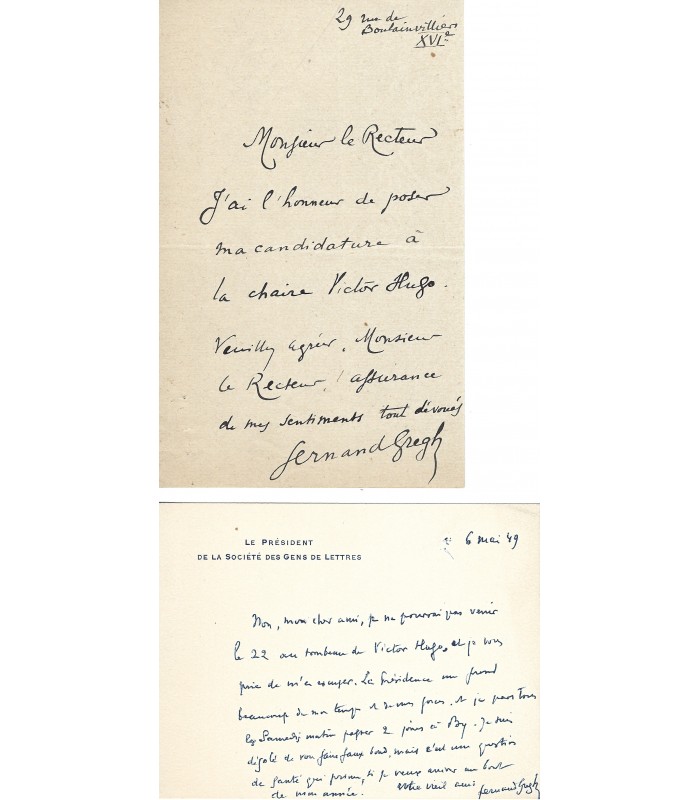 29 rue de
Boulainvilliers
XVIe
Monsieur le Recteur
J'ai l'honneur de poser
ma candidature à
la chaire Victor Hugo.
Veuillez agréer, Monsieur
le Recteur, l'assurance
de mes sentiments tout dévoués
Fernand Gregh
LE PRÉSIDENT
DE LA SOCIÉTÉ DES GENS DE LETTRES
6 mai 49
Non, mon cher ami, je ne pourrai pas venir
le 22 au tombeau de Victor Hugo, et je vous
prie de m'en excuser. La Présidence me prend
beaucoup de mon temps et de mes forces. et je pars tous
les Samedis matin passer 2 jours à By. Je suis
désolé de vous faire faux bond, mais c'est une question
de santé qui prime, si je veux arriver au bout
de mon année. votre vieil ami Fernand Gregh